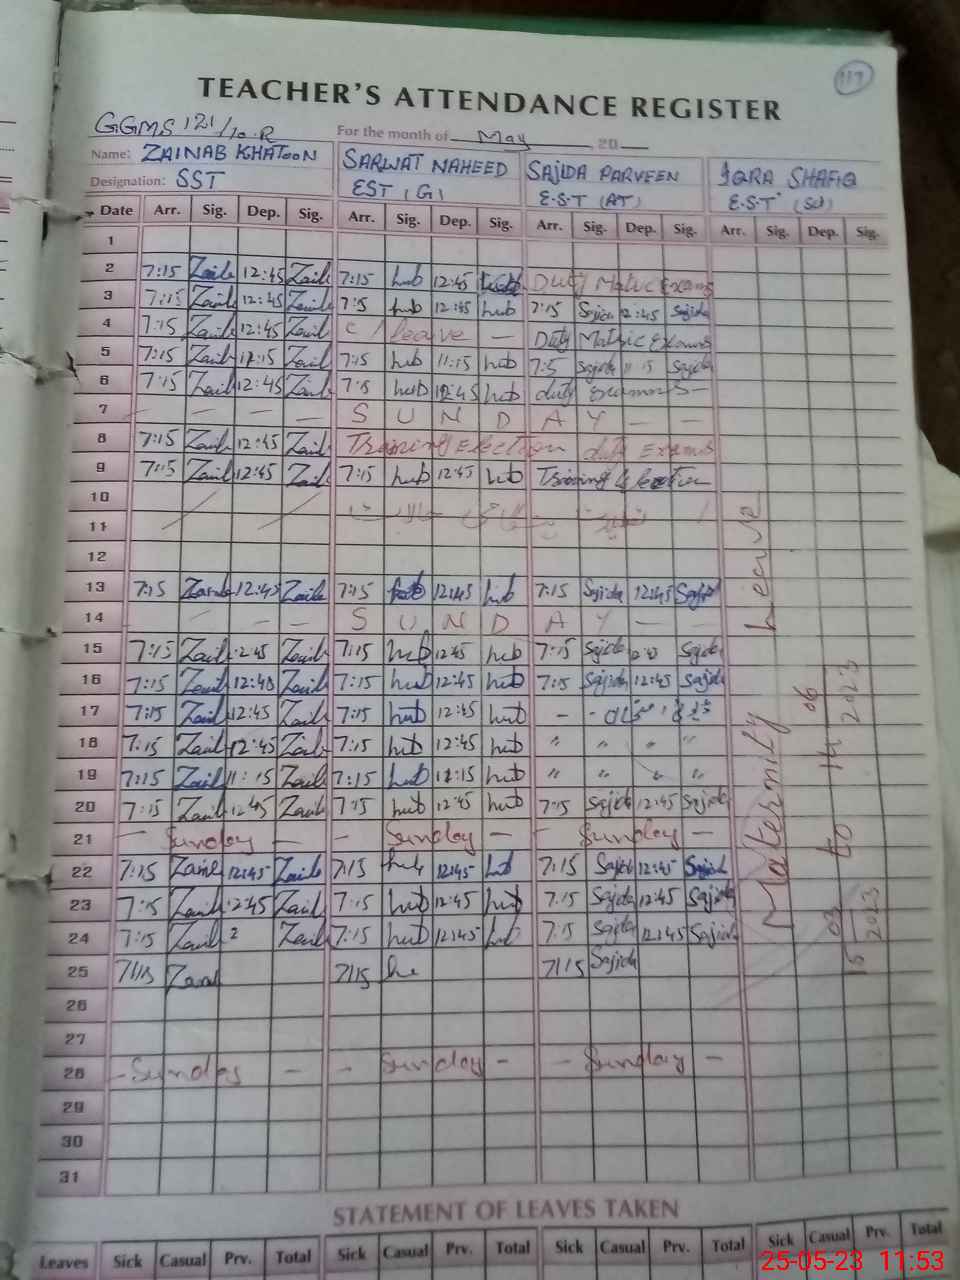 117
TEACHER'S ATTENDANCE REGISTER
GGMS 121/10-R For the month of May 20
Name: ZAINAB KHATOON SARWAT NAHEED SAJIDA PARVEEN IQRA SHAFIQ
Designation: SST EST (G) E.S.T (AT) E.S.T
Date Arr. Sig. Dep. Sig. Arr. Sig. Dep. Sig. Arr. Sig. Dep. Sig. Arr. Sig. Dep. Sig.
1
2 7:15 Zaib 12:45 Zaib 7:15 hub 12:45 Duty Matric Exams
3 7:15 Zaib 12:45 Zaib 7:15 hub 12:45 hub 7:15 Sajida 12:45 Sajida
4 7:15 Zaib 12:45 Zaib C/leave — Duty Matric Exams
5 7:15 Zaib 11:15 Zaib 7:15 hub 11:15 hub 7:15 Sajida 11:15 Sajida
6 7:15 Zaib 12:45 Zaib 7:15 hub 12:45 hub duty
7 — — — — S U N D A Y — —
8 7:15 Zaib 12:45 Zaib Training Election duty Exams
9 7:15 Zaib 12:45 Zaib 7:15 hub 12:45 hub Training Election
10
11
12
13 7:15 Zaib 12:45 Zaib 7:15 hub 12:45 hub 7:15 Sajida 12:45 Sajida
14 — — — S U N D A Y — —
15 7:15 Zaib 12:45 Zaib 7:15 hub 12:45 hub 7:15 Sajida Sajida
16 7:15 Zaib 12:45 Zaib 7:15 hub 12:45 hub 7:15 Sajida 12:45 Sajida
17 7:15 Zaib 12:45 Zaib 7:15 hub 12:45 hub — -
18 7:15 Zaib 12:45 Zaib 7:15 hub 12:45 hub " " " "
19 7:15 Zaib 11:15 Zaib 7:15 hub 12:15 hub " " " "
20 7:15 Zaib 12:45 Zaib 7:15 hub 12:45 hub 7:15 Sajida 12:45 Sajida
21 — Sunday — — Sunday — — Sunday —
22 7:15 Zaib 12:45 Zaib 7:15 hub 12:45 hub 7:15 Sajida 12:45 Sajida
23 7:15 Zaib 12:45 Zaib 7:15 hub 12:45 hub 7:15 Sajida 12:45 Sajida
24 7:15 Zaib 2 Zaib 7:15 hub 12:45 hub 7:15 Sajida 12:45 Sajida
25 7:15 Zaib 7:15 7:15 Sajida
26
27
28 - Sunday — - Sunday - - Sunday -
29
30
31
Maternity Leave
15 03 2023 to 14 06 2023
STATEMENT OF LEAVES TAKEN
Leaves Sick Casual Prv. Total Sick Casual Prv. Total Sick Casual Prv. Total Sick Casual Prv. Total
25-05-23 11:53